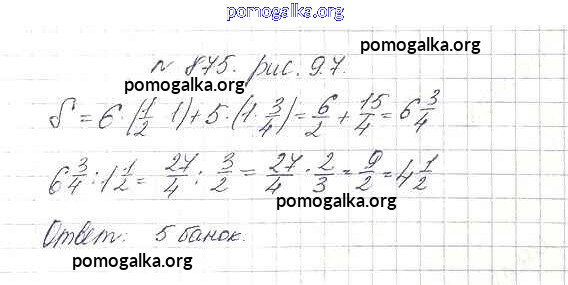 pomogalka.org
pomogalka.org
№ 875. рис. 9.7.
pomogalka.org
S = 6 · (1/2 · 1) + 5 · (1 · 3/4) = 6/2 + 15/4 = 6 3/4
6 3/4 : 1 1/2 = 27/4 : 3/2 = 27/4 · 2/3 = 9/2 = 4 1/2
pomogalka.org
Ответ: 5 банок.
pomogalka.org